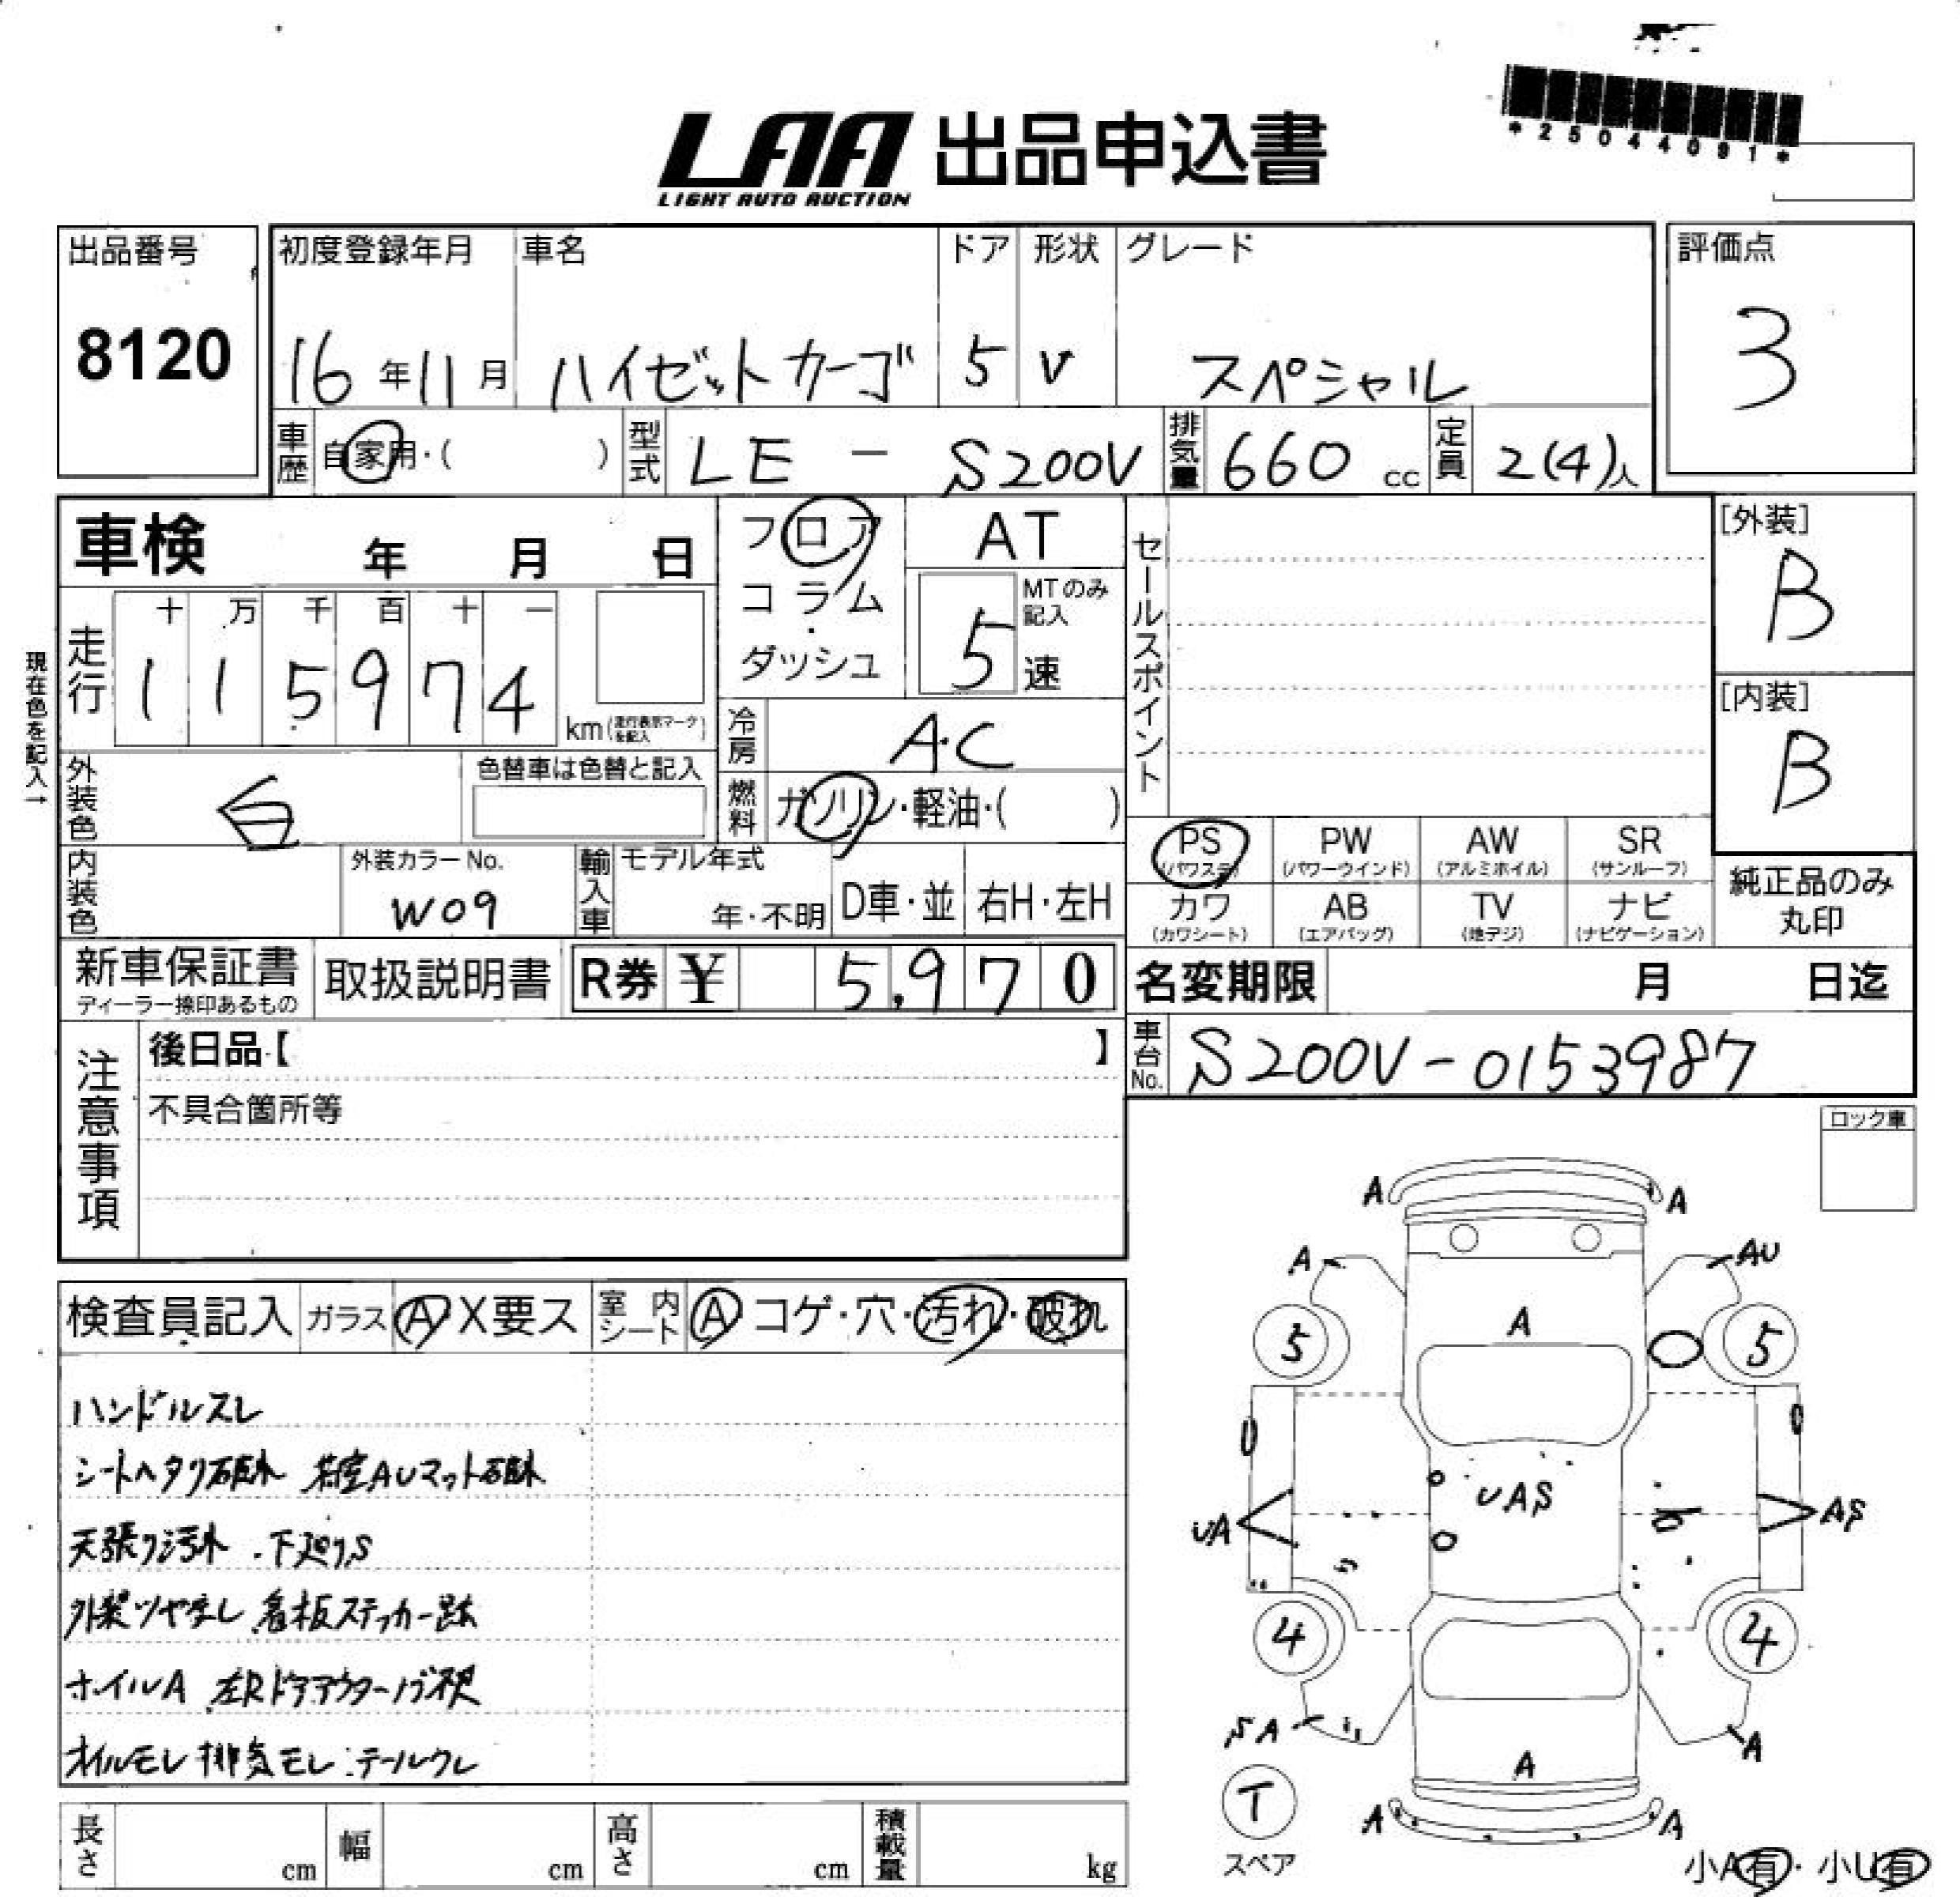 *25044091*
LAA 出品申込書
LIGHT AUTO AUCTION
出品番号
8120
初度登録年月 車名 ドア 形状 グレード
16年11月 ハイゼットカーゴ 5 V スペシャル
評価点
3
車歴 自家用・( ) 型式 LE - S200V 排気量 660 cc 定員 2(4)人
車検 年 月 日
フロア
コラム
・
ダッシュ
AT
MTのみ記入
5速
セールスポイント
[外装]
B
[内装]
B
現在色を記入→
走行 十 万 千 百 十 一
1 1 5 9 7 4
km(走行表示マークを記入)
冷房 A・C
外装色 白 色替車は色替と記入
燃料 ガソリン・軽油・( )
内装色 外装カラーNo. W09
輸入車 モデル年式 年・不明 D車・並 右H・左H
PS (パワステ) PW (パワーウインド) AW (アルミホイル) SR (サンルーフ)
カワ (カワシート) AB (エアバッグ) TV (地デジ) ナビ (ナビゲーション)
純正品のみ
丸印
新車保証書 取扱説明書 R券 ¥ 5,970
ディーラー捺印あるもの
名変期限 月 日迄
車台No. S200V-0153987
注意事項
後日品【 】
不具合箇所等
ロック車
検査員記入 ガラス A X要ス 室内シート A コゲ・穴・汚れ・破れ
ハンドルスレ
シートヘタリ破れ 荷室AUマット破れ
天張り汚れ ・下廻りS
外装ツヤ無し 看板ステッカー跡
ホイルA 左Rドアアウターノブ不良
オイルモレ 排気モレ ・テールワレ
A A
A AU
A
5 5
UAS
UA AS
4 4
SA A
A
A A
T
スペア
小A有・小U有
長さ cm 幅 cm 高さ cm 積載量 kg